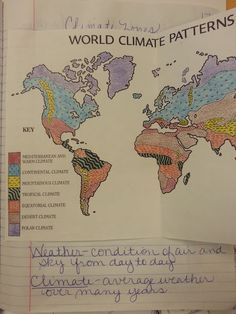 Climate Zones
WORLD CLIMATE PATTERNS
KEY
MEDITERRANEAN AND
WARM CLIMATE
CONTINENTAL CLIMATE
MOUNTAINOUS CLIMATE
TROPICAL CLIMATE
EQUATORIAL CLIMATE
DESERT CLIMATE
POLAR CLIMATE
Weather- condition of air and
sky from day to day
Climate- average weather
over many years